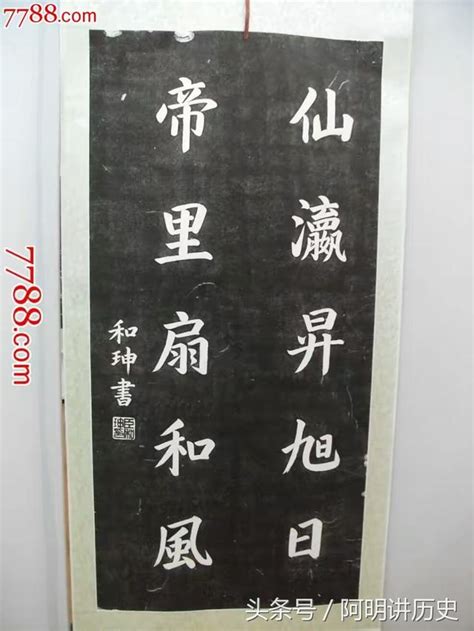 7788.com
仙瀛昇旭日
帝里扇和風
和珅書
7788.com
头条号／阿明讲历史